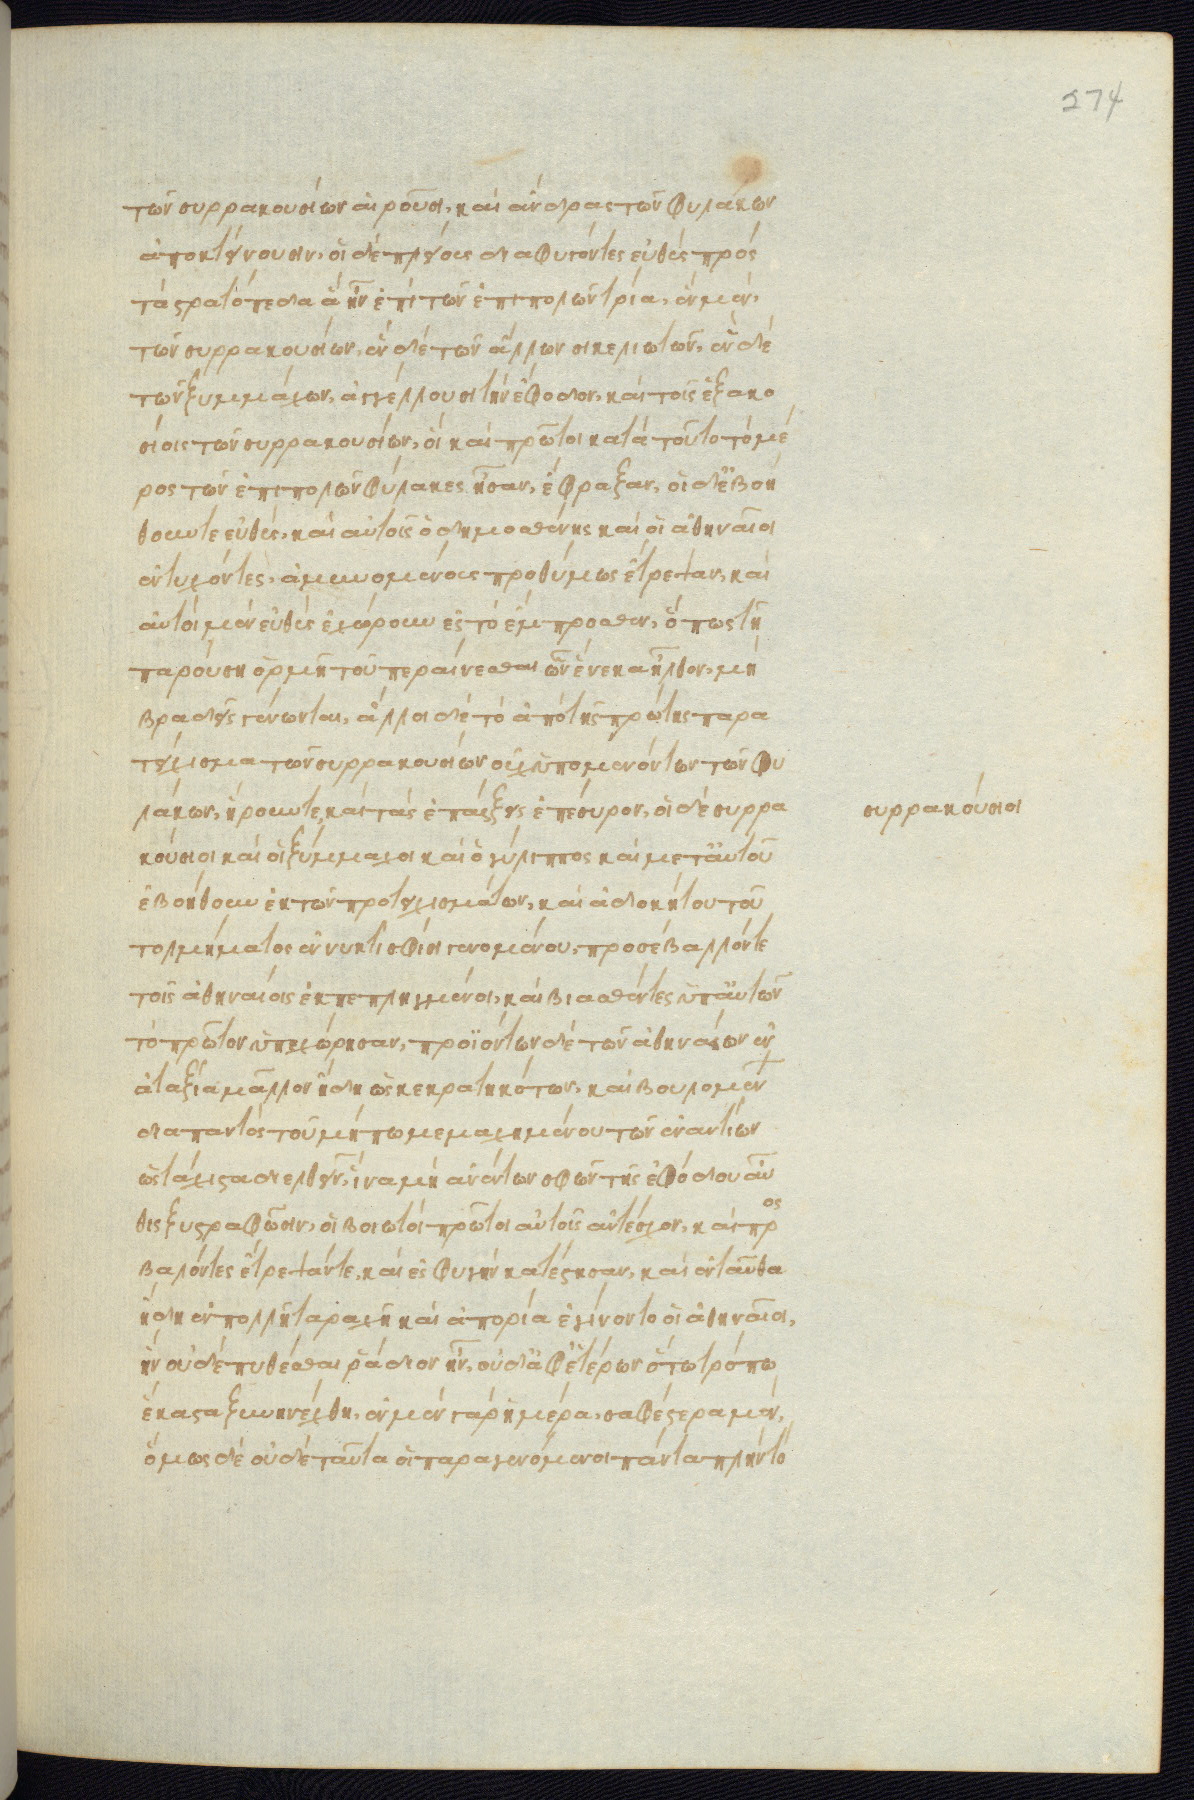 274
τῶν συρρακουσίων αἱροῦσι, καὶ ἄνδρας τῶν φυλάκων
ἀποκτείνουσιν, οἱ δὲ πλείους διαφυγόντες εὐθὺς πρὸς
τὰ στρατόπεδα ἃ ἦν ἐπὶ τῶν ἐπιπολῶν τρία, ἓν μὲν,
τῶν συρρακουσίων, ἓν δὲ τῶν ἄλλων σικελιωτῶν, ἓν δὲ
τῶν ξυμμάχων, ἀγγέλλουσι τὴν ἔφοδον, καὶ τοῖς ἑξακο
σίοις τῶν συρρακουσίων, οἳ καὶ πρῶτοι κατὰ τοῦτο τὸ μέ
ρος τῶν ἐπιπολῶν φύλακες ἦσαν, ἔφραξαν, οἱ δ' ἐβοή
θουν τε εὐθὺς, καὶ αὐτοῖς ὁ δημοσθένης καὶ οἱ ἀθηναῖοι
ἐντυχόντες, ἀμυνομένους προθύμως ἔτρεψαν, καὶ
αὐτοὶ μὲν εὐθὺς ἐχώρουν ἐς τὸ ἔμπροσθεν, ὅπως τῇ
παρούσῃ ὁρμῇ τοῦ περαίνεσθαι ὧν ἕνεκα ἦλθον, μὴ
βραδεῖς γένωνται, ἄλλοι δὲ τὸ ἀπὸ τῆς πρώτης παρα
τείχισμα τῶν συρρακουσίων οὐχ ὑπομενόντων τῶν φυ
λάκων, ᾕρουν τε καὶ τὰς ἐπάλξεις ἐπέσυρον, οἱ δὲ συρρα
συρρακούσιοι
κούσιοι καὶ οἱ ξύμμαχοι καὶ ὁ γύλιππος καὶ μετ' αὐτοῦ
ἐβοήθουν ἐκ τῶν προτειχισμάτων, καὶ ἀδοκήτου τοῦ
τολμήματος ἐν νυκτὶ σφίσι γενομένου, προσέβαλλόν τε
τοῖς ἀθηναίοις ἐκπεπληγμένοι, καὶ βιασθέντες ὑπ' αὐτῶν
τὸ πρῶτον ὑπεχώρησαν, προϊόντων δὲ τῶν ἀθηναίων ἐν
ἀταξίᾳ μᾶλλον ἤδη ὡς κεκρατηκότων, καὶ βουλομέν
διαπαντὸς τοῦ μήπω μεμαχημένου τῶν ἐναντίων
ὡς τάχιστα διελθεῖν, ἵνα μὴ ἀνέντων σφῶν τῆς ἐφόδου αὖ
θις ξυστραφῶσιν, οἱ βοιωτοὶ πρῶτοι αὐτοῖς ἀντέσχον, καὶ προσ
βαλόντες ἔτρεψάν τε, καὶ ἐς φυγὴν κατέστησαν, καὶ ἐνταῦθα
ἤδη ἐν πολλῇ ταραχῇ καὶ ἀπορίᾳ ἐγίνοντο οἱ ἀθηναῖοι,
ἣν οὐδὲ πυθέσθαι ῥᾴδιον ἦν, οὐδ' ἀφ' ἑτέρων ὅτῳ τρόπῳ
ἕκαστα ξυνηνέχθη, ἐν μὲν γὰρ ἡμέρᾳ, σαφέστερα μὲν,
ὅμως δὲ οὐδὲ ταῦτα οἱ παραγενόμενοι πάντα πλὴν τὸ